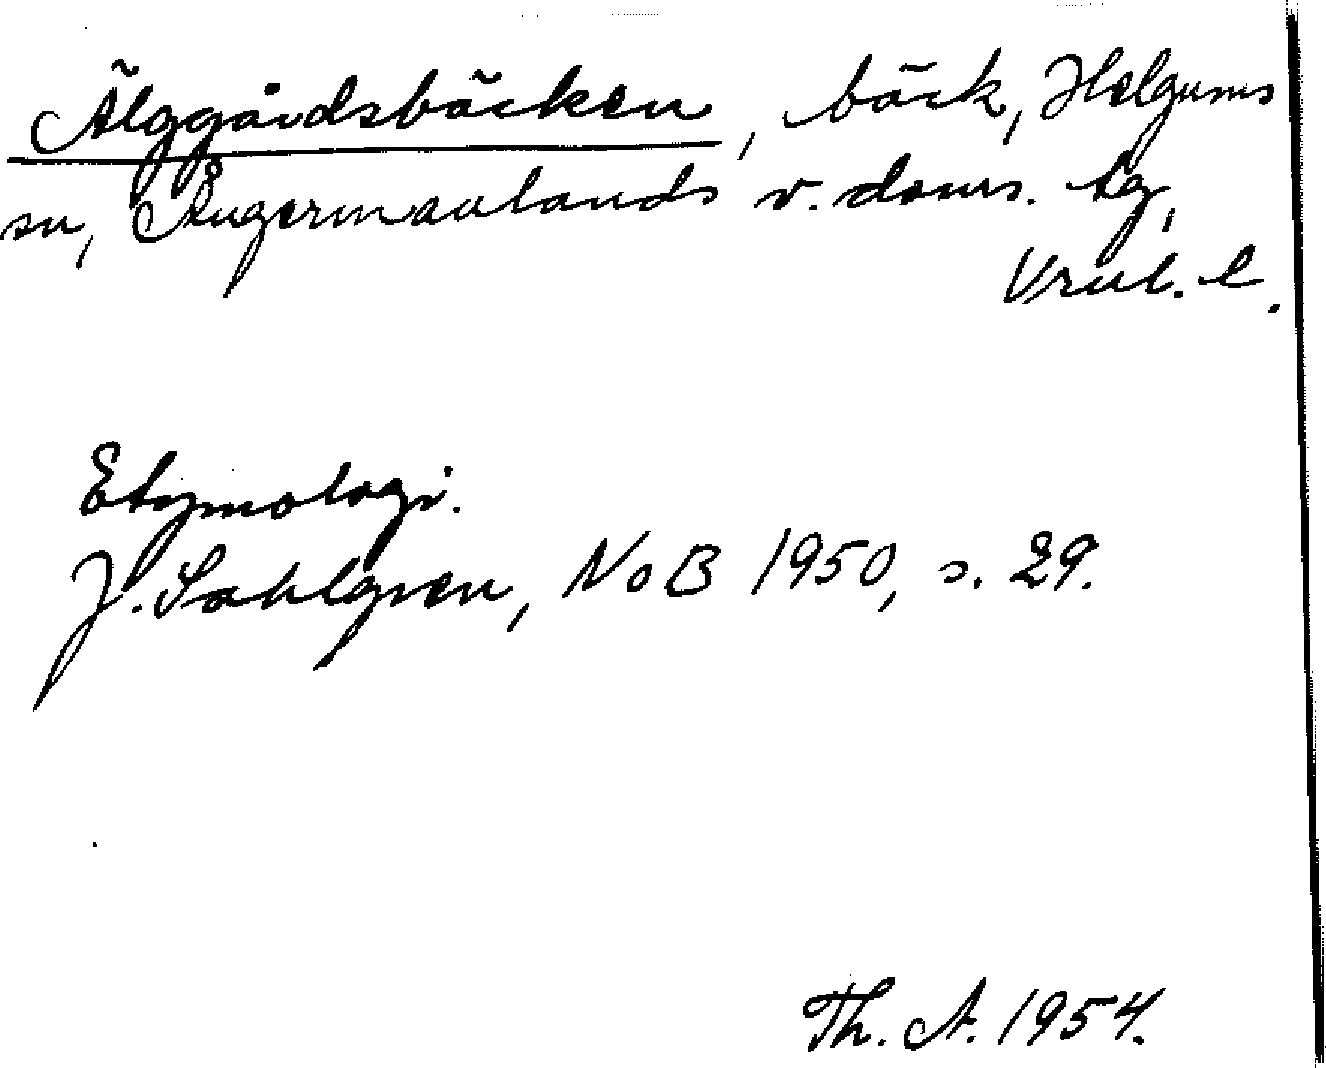 Älggårdsbäcken, bäck, Helgums
sn, Ångermanlands v. doms. tg,
Vrnl. l.
Etymologi.
J. Sahlgren, NoB 1950, s. 29.
Th. A. 1954.